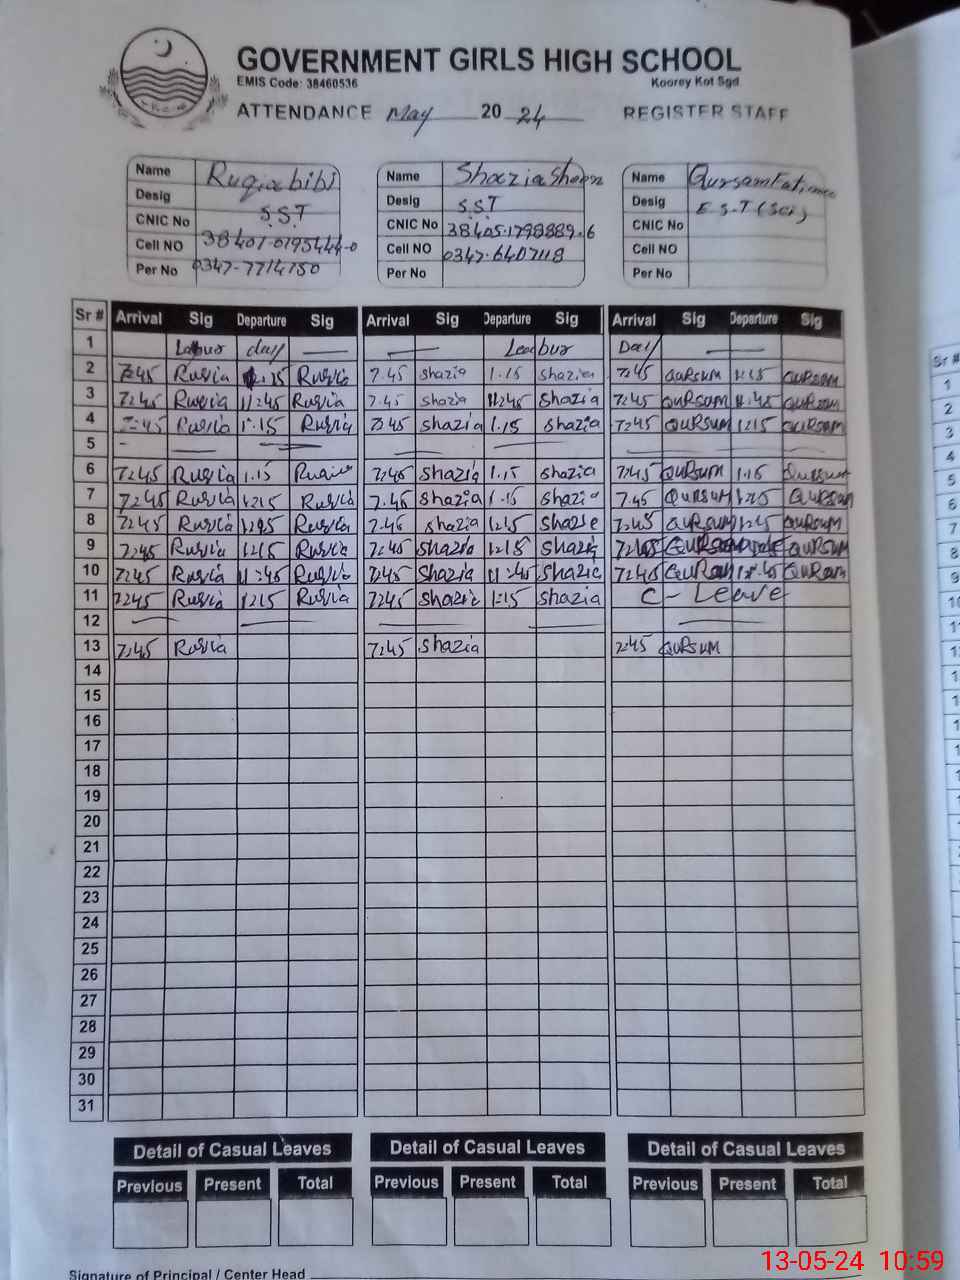 GOVERNMENT GIRLS HIGH SCHOOL
EMIS Code: 38460536 Koorey Kot Sgd
ATTENDANCE May 20 24 REGISTER STAFF
Name Ruqia bibi
Desig S.S.T
CNIC No 38401-0195444-0
Cell NO 0347-7714750
Per No
Name Shazia Shaen
Desig S.S.T
CNIC No 38405-1798889-6
Cell NO 0347-6407118
Per No
Name Qursam Fatima
Desig E.S.T (Sci)
CNIC No
Cell NO
Per No
Sr # Arrival Sig Departure Sig Arrival Sig Departure Sig Arrival Sig Departure Sig
1 Labur day — — Leabur Day —
2 7:45 Ruqia 1.15 Ruqia 7.45 Shazia 1.15 shazia 7:45 QURSUM 1:15 QURSUM
3 7:45 Ruqia 11:45 Ruqia 7.45 shazia 11:45 Shazia 7:45 QURSUM 11:45 QURSUM
4 7:45 Ruqia 1.15 Ruqia 7:45 shazia 1.15 shazia 7:45 QURSUM 1:15 QURSUM
5 — — — — — —
6 7:45 Ruqia 1.15 Ruqia 7:45 Shazia 1.15 shazia 7:45 QURSUM 1.15 Qursum
7 7:45 Ruqia 1:15 Ruqia 7.45 Shazia 1.15 shazia 7.45 QURSUM 1:15 QURSUM
8 7:45 Ruqia Ruqia 7.45 shazia 7:45 QURSUM QURSUM
9 7:45 Ruqia 1:15 Ruqia 7:45 Shazia 1:15 Shazia QURSUM
10 7:45 Ruqia 11:45 Ruqia 7:45 Shazia 11:45 Shazia 7:45 QURSUM QURSUM
11 7:45 Ruqia 1:15 Ruqia 7:45 Shazia 1:15 Shazia C- Leave
12 — — — — —
13 7:45 Ruqia 7:45 Shazia 7:45 QURSUM
14
15
16
17
18
19
20
21
22
23
24
25
26
27
28
29
30
31
Detail of Casual Leaves Detail of Casual Leaves Detail of Casual Leaves
Previous Present Total Previous Present Total Previous Present Total
Signature of Principal / Center Head
13-05-24 10:59
Sr #
1
2
3
4
5
6
7
8
9